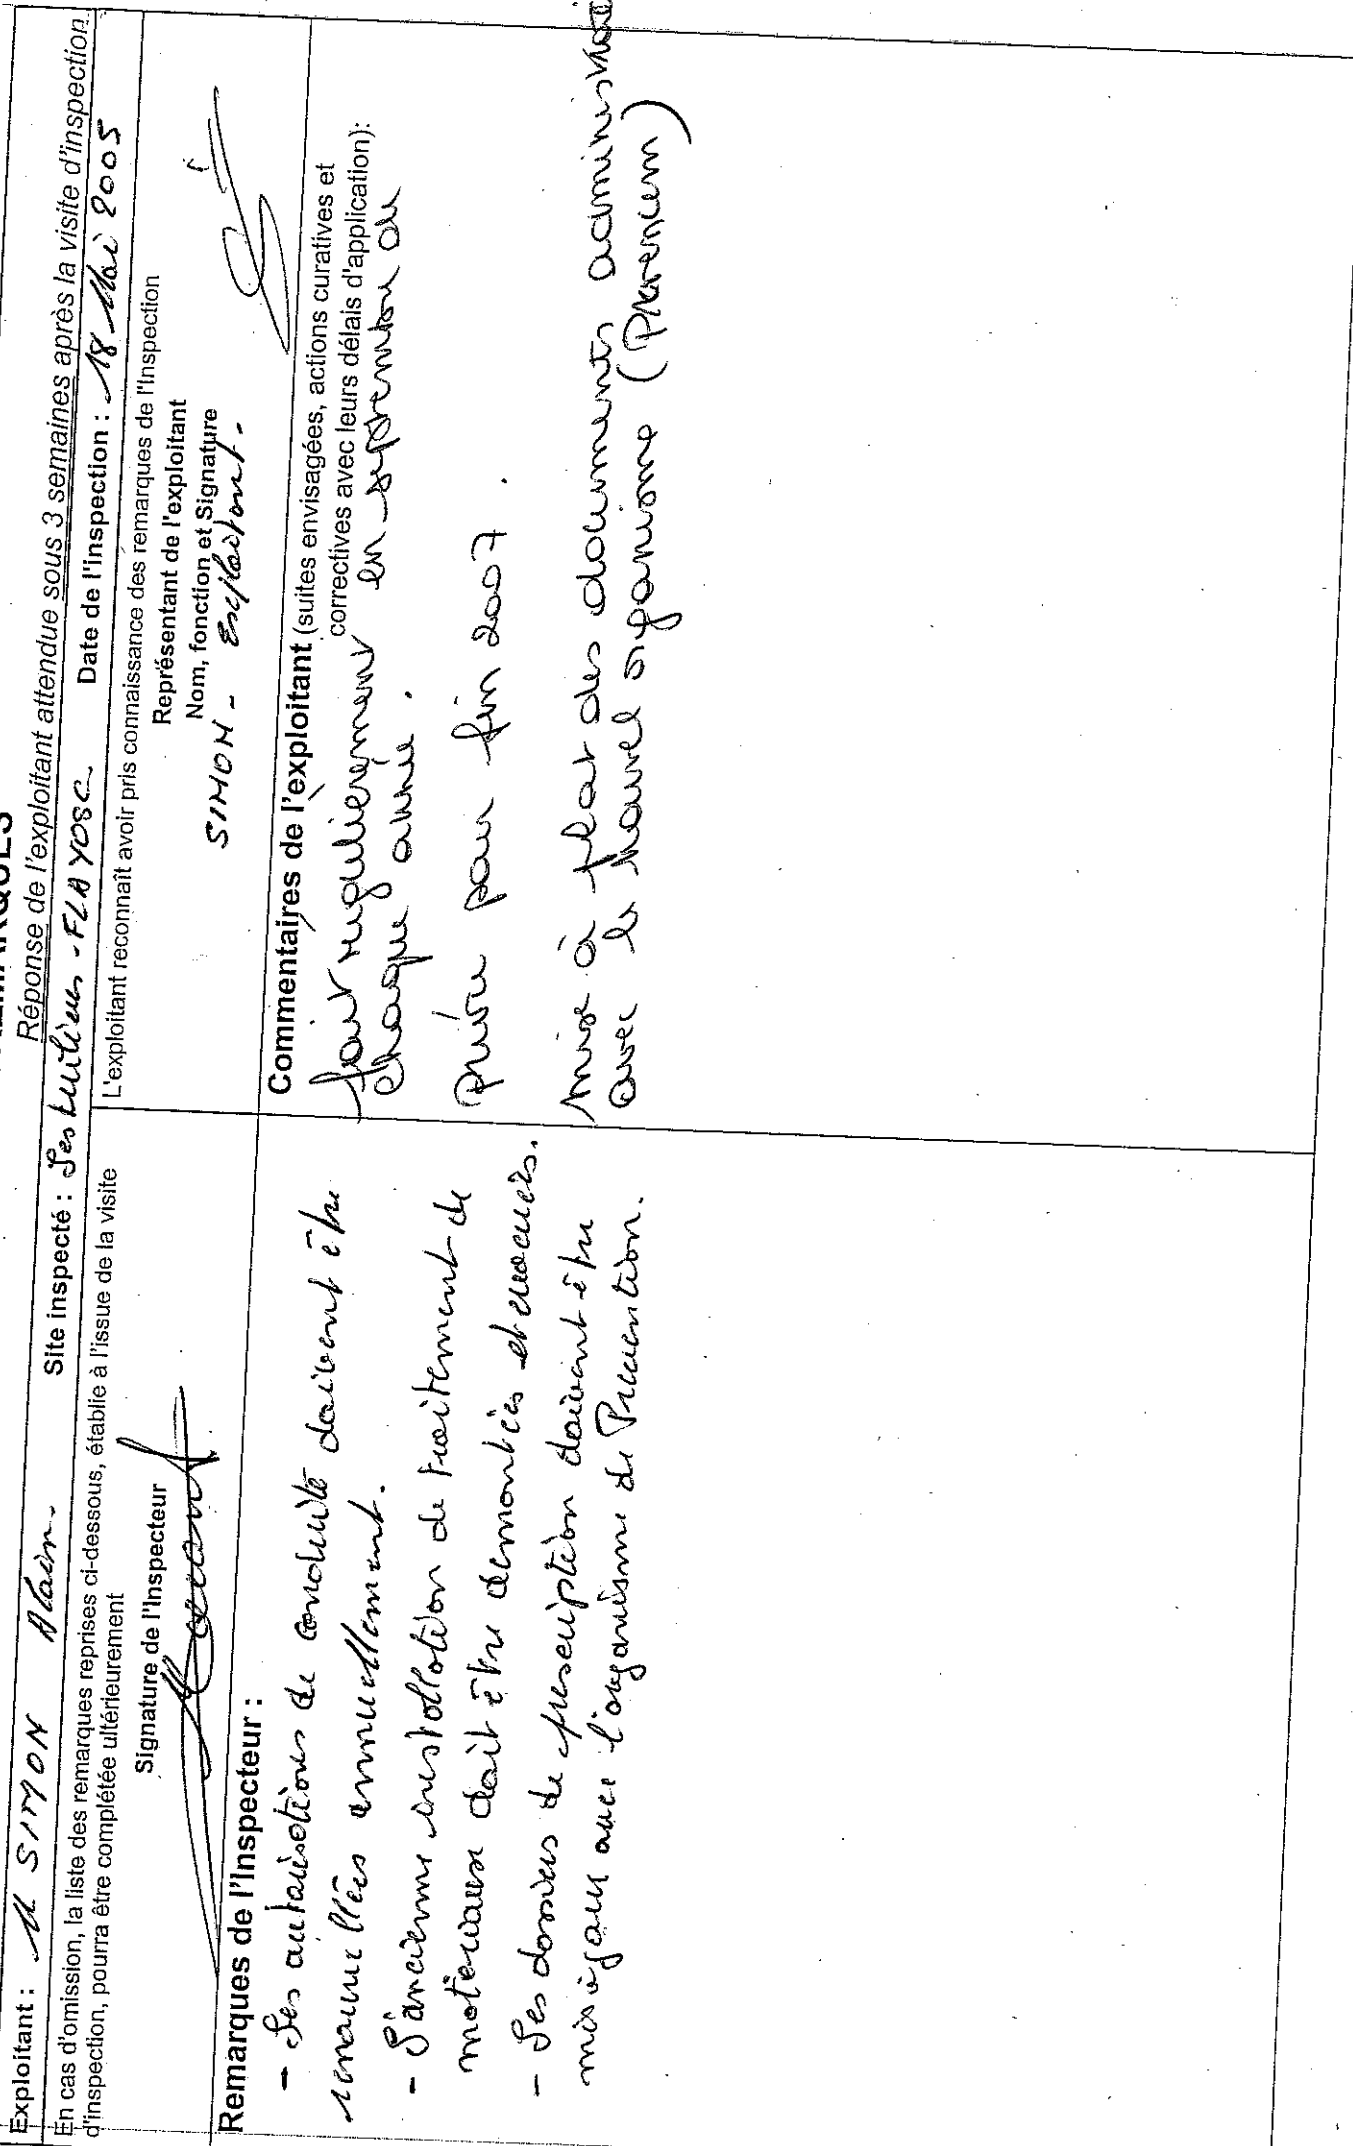 Réponse de l'exploitant attendue sous 3 semaines après la visite d'inspection
Exploitant : M SIMON Alain. Site inspecté : Les - FLAYOSC Date de l'inspection : 18 Mai 2005
En cas d'omission, la liste des remarques reprises ci-dessous, établie à l'issue de la visite
d'inspection, pourra être complétée ultérieurement
Signature de l'Inspecteur
L'exploitant reconnaît avoir pris connaissance des remarques de l'Inspection
Représentant de l'exploitant
Nom, fonction et Signature
SIMON - Exploitant.
Remarques de l'Inspecteur :
- Les autorisations de conduite doivent être
renouvellées annuellement.
- L'ancienne installation de traitement de
materiaux doit être demontées et evacuées.
- Les dossiers de prescription doivent être
mis à jour avec l'organisme de Prevention.
Commentaires de l'exploitant (suites envisagées, actions curatives et
correctives avec leurs délais d'application):
fait regulierement en septembre de
chaque année.
prévu pour fin 2007.
mise à plat des documents
avec le nouvel organisme (Prevencem)